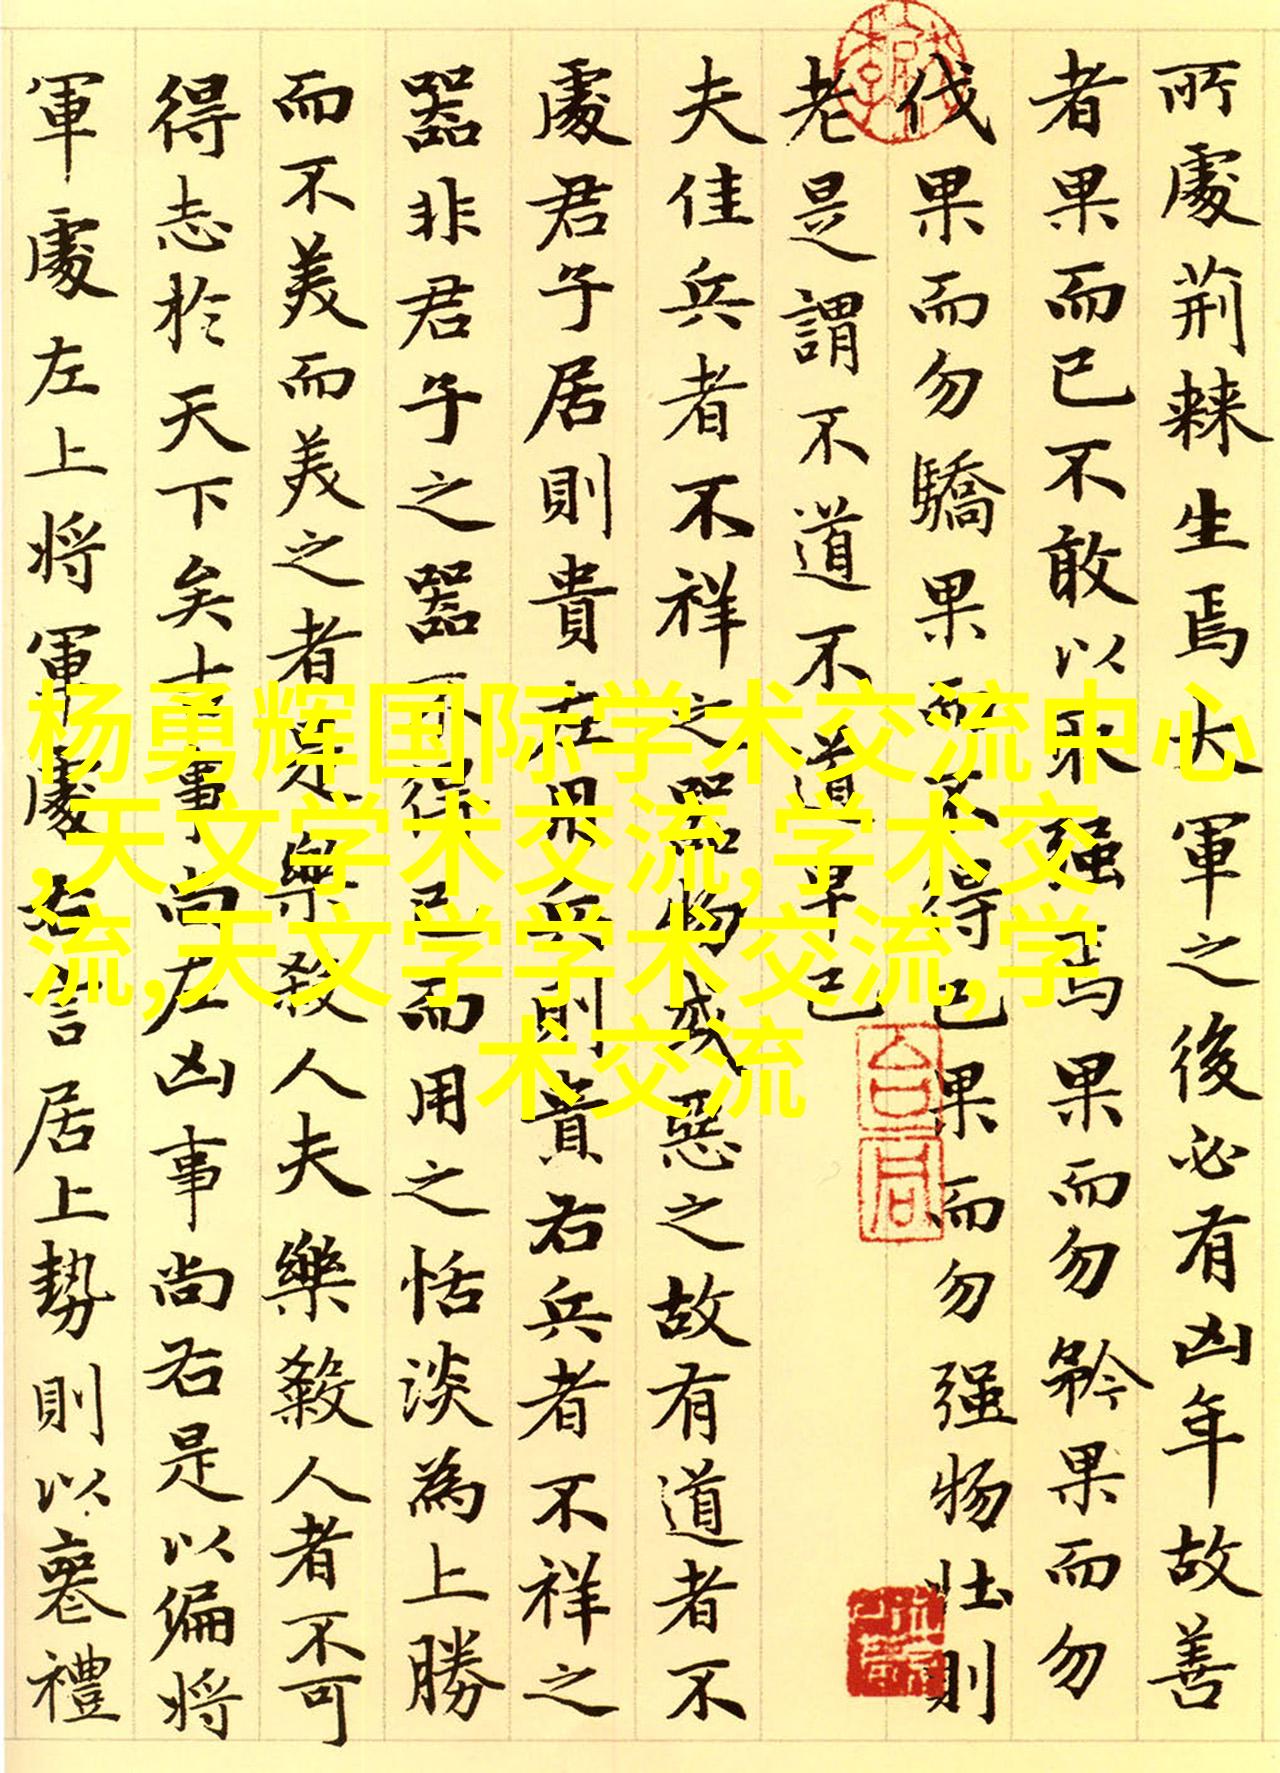 所處荊棘生焉大軍之後必有凶年故善
者果而已不敢以取强焉果而勿矜果而勿
伐果而勿驕果而不得已果而勿强物壯則
老是謂不道不道早已
夫佳兵者不祥之器物或惡之故有道者不
處君子居則貴左用兵則貴右兵者不祥之
器非君子之器不得已而用之恬淡為上勝
而不美而美之者是樂殺人夫樂殺人者不可
得志於天下矣吉事尚左凶事尚右是以偏將
軍處左上將軍處右言居上勢則以喪禮
杨勇辉国际学术交流中心
,天文学术交流,学术交
流,天文学学术交流,学
术交流